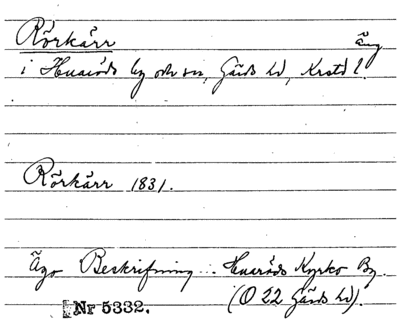 Rörkärr äng
i Huaröds by och sn, Gärds hd, Krstd l.
Rörkärr 1831.
Ägo Beskrifning... Huaröds Kyrko By.
Nr 5332. (O 22 Gärds hd).